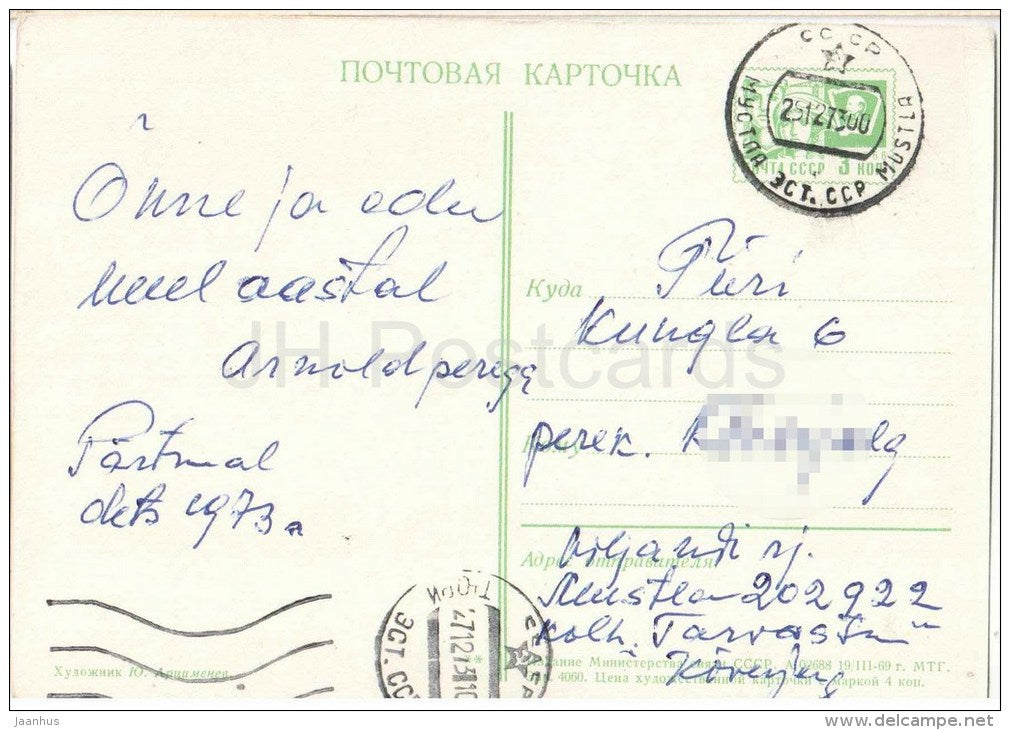 ПОЧТОВАЯ КАРТОЧКА
СССР
МУСТЛА ЭСТ. ССР MUSTLA
25127300
ПОЧТА СССР 3 КОП
Õnne ja edu
uuel aastal
Arnold perega
Pärtmal
dets 1973 a
Куда
Türi
Kungla 6
Кому
perek.
Адрес отправителя
Viljandi rj.
Mustla 202922
kolh. "Tarvastu"
ТЮРИ
СССР
ЭСТ. ССР
Художник Ю. Арцименев
Издание Министерства связи СССР. А 02688 19/III-69 г. МТГ.
4060. Цена художественной карточки с маркой 4 коп.
JH Postcards
jaanhus
delcampe.net